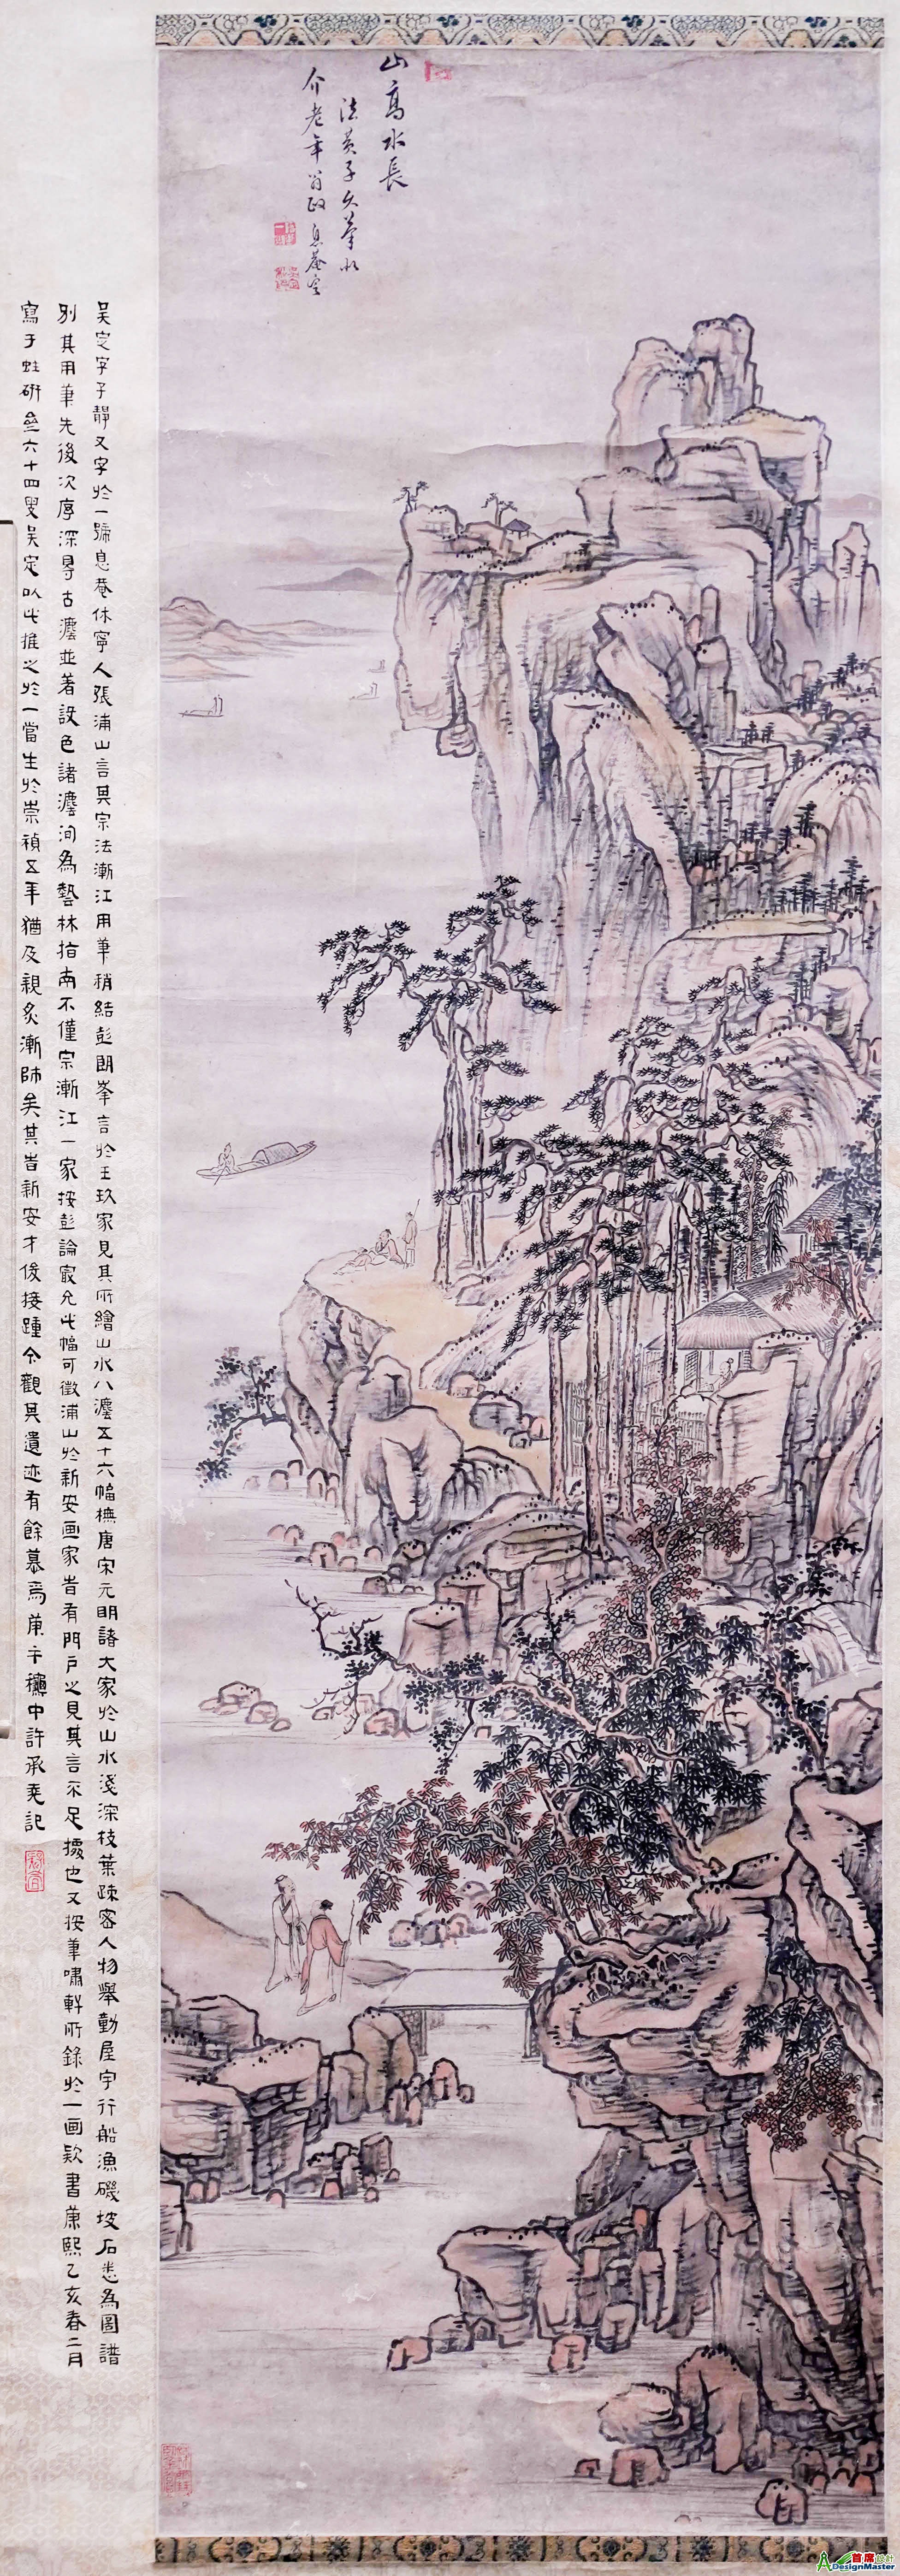 山高水長
法黃子久筆似
介老年翁政 息菴定
吳定字子靜又字於一號息菴休寧人張浦山言其宗法漸江用筆稍結彭朗峯言於王玖家見其所繪山水八灋五十六幅橅唐宋元明諸大家於山水淺深枝葉疎密人物舉動屋宇行船漁磯坡石悉為圖譜
別其用筆先後次序深尋古灋並著設色諸灋洵為藝林指南不僅宗漸江一家按彭論寂允此幅可徵浦山於新安画家皆有門戶之見其言不足據也又按筆嘯軒所錄於一画款書康熙乙亥春二月
寫于蛀研壘六十四叟吳定以此推之於一當生於崇禎五年猶及親炙漸師矣其時新安才俊接踵今觀其遺迹有餘慕焉庚午穐中許承堯記
首席設計
ADesignMaster